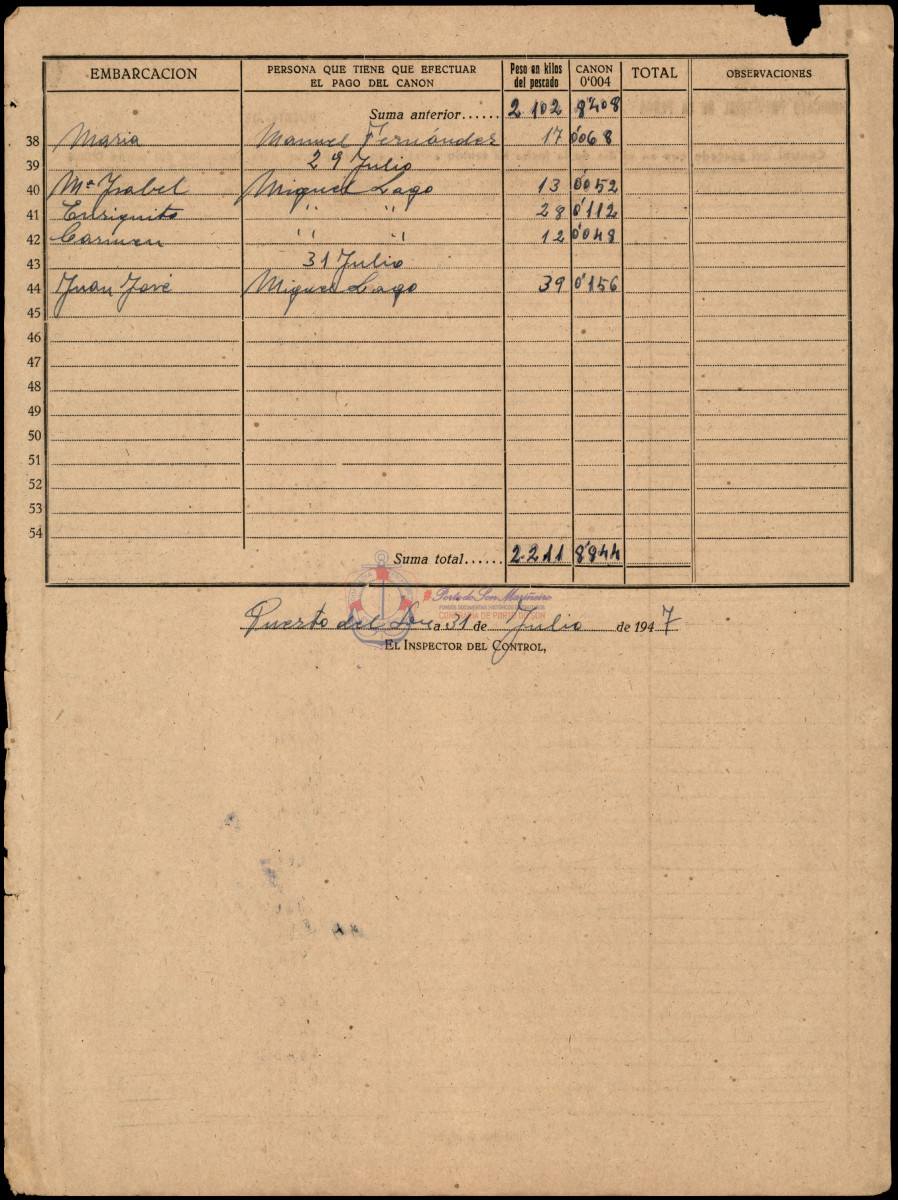 EMBARCACION PERSONA QUE TIENE QUE EFECTUAR EL PAGO DEL CANON Peso en kilos del pescado CANON 0'004 TOTAL OBSERVACIONES
Suma anterior...... 2.102 8'408
38 Maria Manuel Fernández 17 0'068
39 29 Julio
40 Mª Isabel Miguel Lago 13 0'052
41 Enriquito " " 28 0'112
42 Carmen " " 12 0'048
43 31 Julio
44 Juan José Miguel Lago 39 0'156
45
46
47
48
49
50
51
52
53
54
Suma total...... 2.211 8'844
Porto do Son Mariñeiro
Puerto del Son a 31 de Julio de 1947
EL INSPECTOR DEL CONTROL,